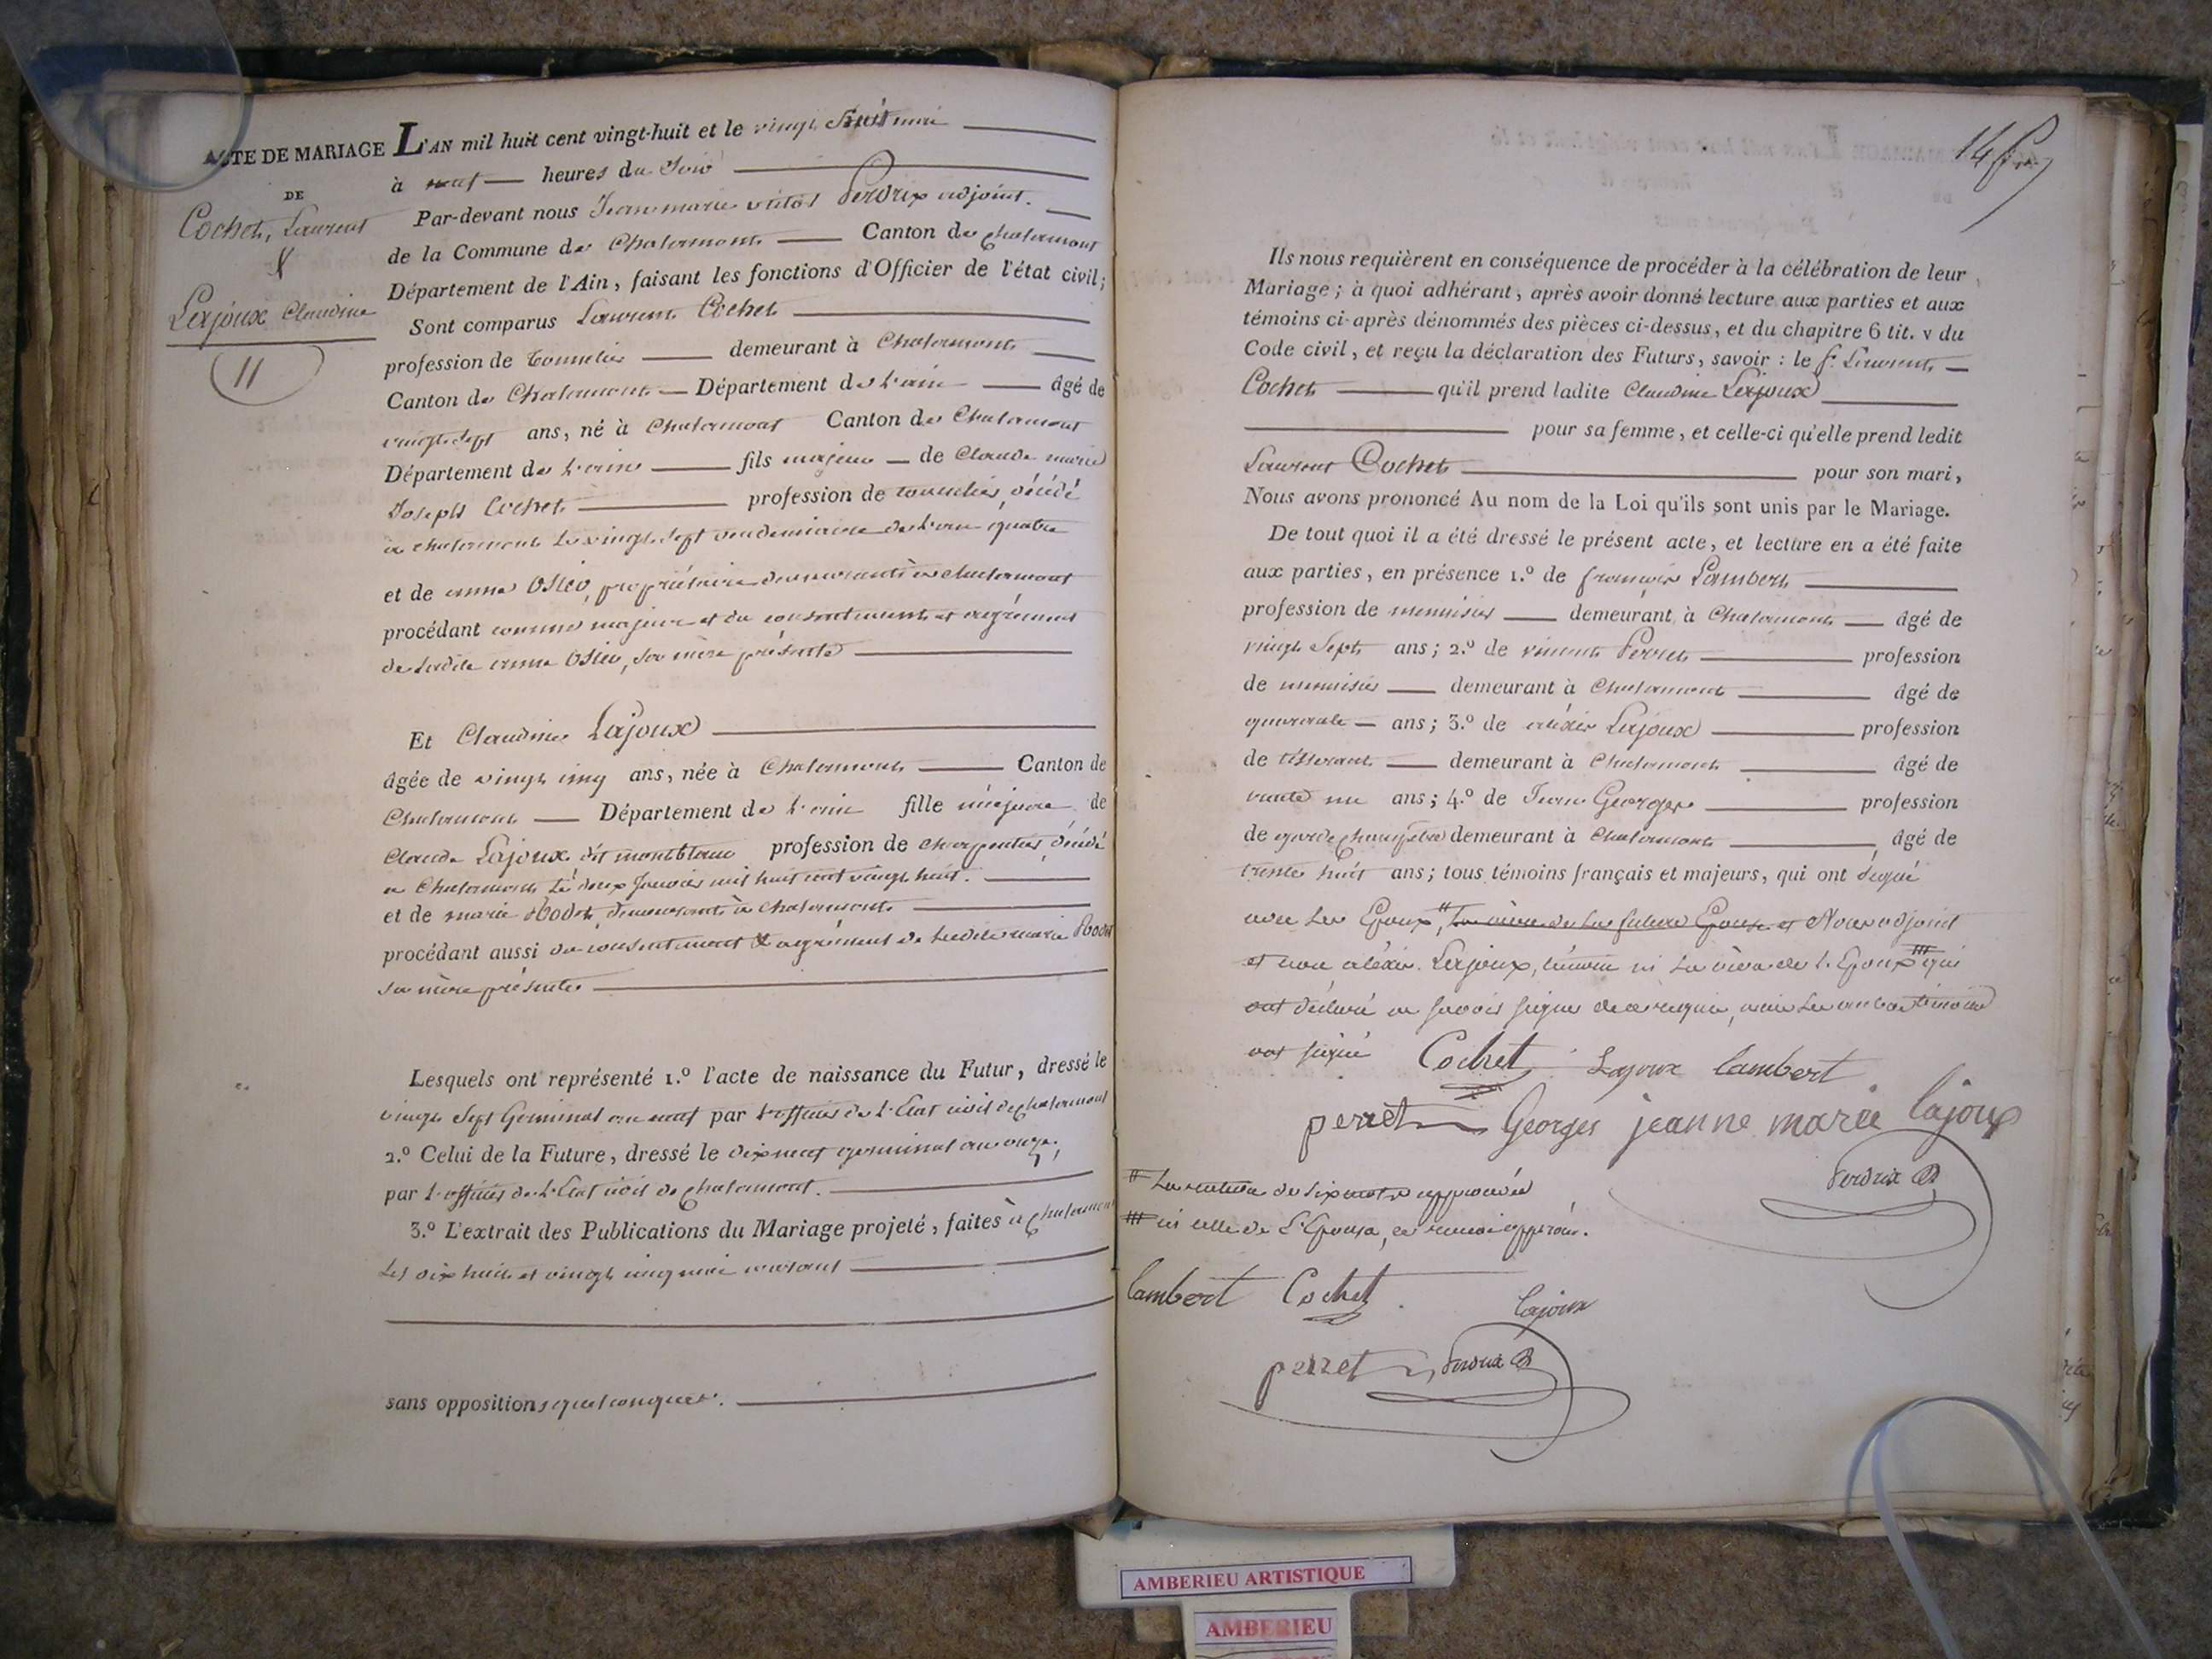 ACTE DE MARIAGE
DE
Cochet, Laurent
&
Lajoux Claudine
11
L'AN mil huit cent vingt-huit et le vingt mai
à neuf heures du Soir
Par-devant nous Jean marie Perdrix adjoint.
de la Commune de Chalamont Canton de chalamont
Département de l'Ain, faisant les fonctions d'Officier de l'état civil;
Sont comparus Laurent Cochet
profession de Tonnelier demeurant à Chalamont
Canton de Chalamont Département de l'ain âgé de
vingt sept ans, né à Chalamont Canton de Chalamont
Département de l'ain fils majeur de Claude marie
Joseph Cochet profession de tonnelier, décédé
à chalamont le vingt sept vendemiaire de l'an quatre
et de anne propriétaire demeurant à chalamont
procédant comme majeur et du consentement et agrément
de ladite anne sa mère présente
Et Claudine Lajoux
âgée de vingt cinq ans, née à Chalamont Canton de
Chalamont Département de l'ain fille majeure de
Claude Lajoux dit montblanc profession de charpentier, décédé
a Chalamont Le deux Janvier mil huit cent vingt huit.
et de marie Rodet, demeurant à chalamont
procédant aussi du consentement & agrément de ladite marie Rodet
sa mère présente
Lesquels ont représenté 1.º l'acte de naissance du Futur, dressé le
vingt Sept Germinal an neuf par l'officier de l'Etat civil de chalamont
2.º Celui de la Future, dressé le dixneuf germinal an onze;
par l'officier de l'Etat civil de chalamont.
3.º L'extrait des Publications du Mariage projeté, faites à chalamont
les dix huit et vingt cinq mai courant
sans oppositions quelconques.
14
Ils nous requièrent en conséquence de procéder à la célébration de leur
Mariage; à quoi adhérant, après avoir donné lecture aux parties et aux
témoins ci-après dénommés des pièces ci-dessus, et du chapitre 6 tit. v du
Code civil, et reçu la déclaration des Futurs, savoir : le s.r Laurent
Cochet qu'il prend ladite Claudine Lajoux
pour sa femme, et celle-ci qu'elle prend ledit
Laurent Cochet pour son mari,
Nous avons prononcé Au nom de la Loi qu'ils sont unis par le Mariage.
De tout quoi il a été dressé le présent acte, et lecture en a été faite
aux parties, en présence 1.º de françois Lambert
profession de menuisier demeurant à Chalamont âgé de
vingt Sept ans; 2.º de vincent Perret profession
de menuisier demeurant à Chalamont âgé de
quarante ans; 3.º de aléxis Lajoux profession
de tisserant demeurant à Chalamont âgé de
trente un ans; 4.º de Jean Georges profession
de garde champêtre demeurant à Chalamont âgé de
trente huit ans; tous témoins français et majeurs, qui ont signé
avec les Epoux, la mère de la future Epouse et Nous adjoint
et non aléxis Lajoux, témoin ni La mère de l'Epoux qui
ont déclaré ne savoir signer de ce requis, mais les autres témoins
ont signé Cochet Lajoux lambert
perret Georges jeanne marie lajoux
Perdrix
# La rature de six mots approuvée
### ni celle de L'Epouse, ce renvoi approuvé.
lambert Cochet lajoux
perret Perdrix
AMBERIEU ARTISTIQUE
AMBERIEU